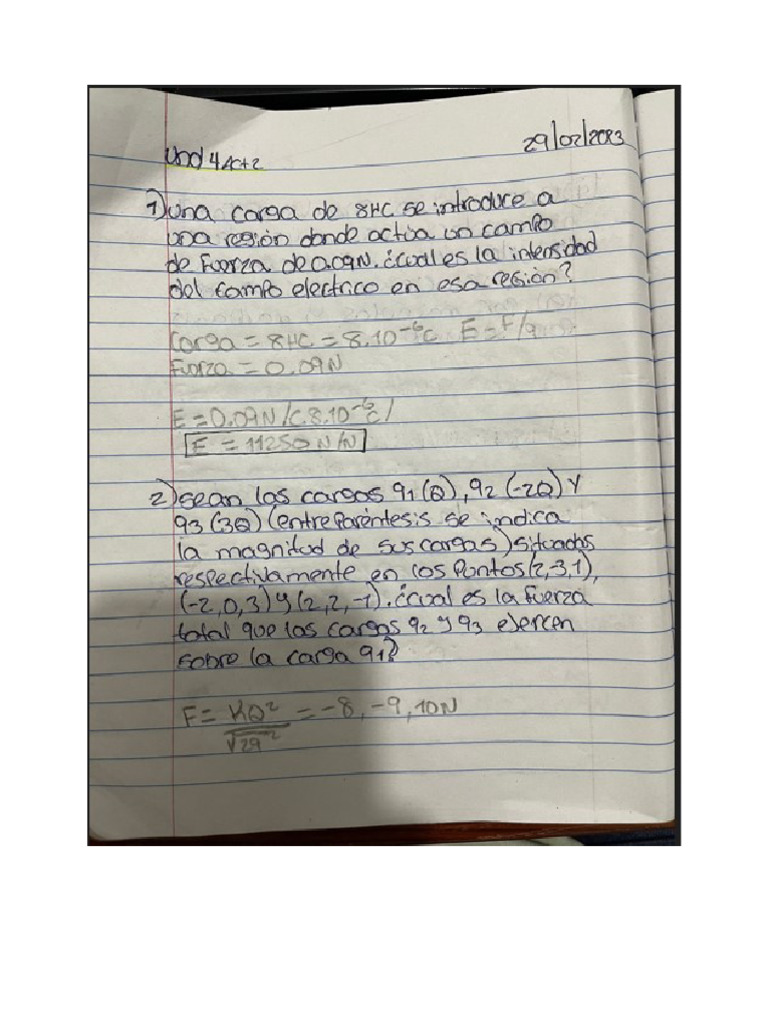 Und 4 Act 2
29/02/2023
1) Una carga de 8HC se introduce a
una región donde actúa un campo
de Fuerza de 0.09N. ¿cual es la intensidad
del campo electrico en esa región?
Carga = 8HC = 8.10⁻⁶C E = F/q
Fuerza = 0.09N
E = 0.09N/C 8.10⁻⁶C/
E = 11250N/N
2) sean las cargas q1(Q), q2(-2Q) y
q3(3Q) (entre Paréntesis se indica
la magnitud de sus cargas) situados
respectivamente en los Puntos (2,-3,1),
(-2,0,3) y (2,2,-1). ¿cual es la Fuerza
total que las cargas q2 y q3 ejercen
sobre la carga q1?
F = KQ²/√29² = -8,-9,10N